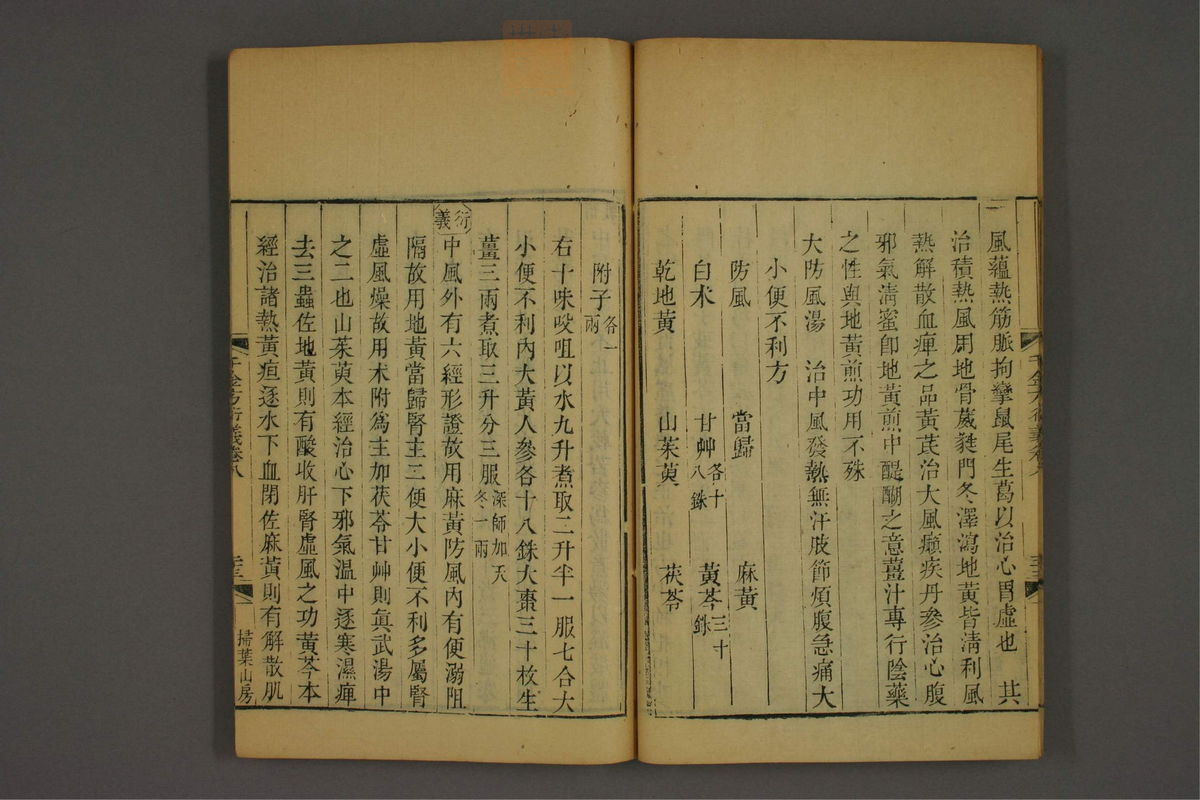 風蘊熱筋脈拘攣鼠尾生葛以治心胃虛也　其
治積熱風用地骨葳蕤門冬澤瀉地黃皆清利風
熱解散血痺之品黃芪治大風癩疾丹參治心腹
邪氣淸蜜卽地黃煎中醍醐之意薑汁專行陰藥
之性與地黃煎功用不殊
大防風湯　治中風發熱無汗肢節煩腹急痛大
小便不利方
防風　當歸　麻黃
白朮　甘艸各十八銖　黃芩三十銖
乾地黃　山茱萸　茯苓
附子各一兩
右十味㕮咀以水九升煮取二升半一服七合大
小便不利內大黃人參各十八銖大棗三十枚生
薑三兩煮取三升分三服深師加天冬一兩
衍義
中風外有六經形證故用麻黃防風內有便溺阻
隔故用地黃當歸腎主二便大小便不利多屬腎
虛風燥故用朮附爲主加茯苓甘艸則眞武湯中
之二也山茱萸本經治心下邪氣温中逐寒濕痺
去三蟲佐地黃則有酸收肝腎虛風之功黃芩本
經治諸熱黃疸逐水下血閉佐麻黃則有解散肌
千金方衍義卷八
掃葉山房